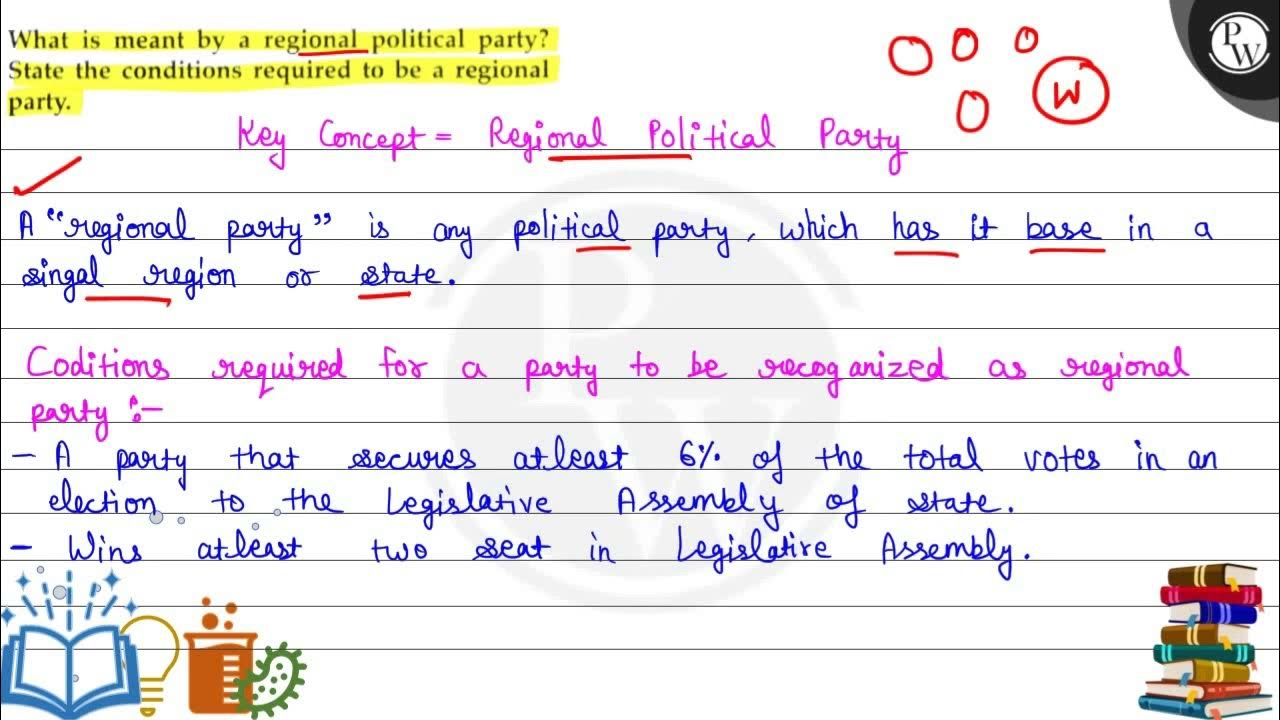 What is meant by a regional political party?
State the conditions required to be a regional
party.
PW
W
Key Concept = Regional Political Party
A "regional party" is any political party, which has it base in a
singal region or state.
Coditions required for a party to be recoganized as regional
party :-
- A party that secures atleast 6% of the total votes in an
election to the Legislative Assembly of state.
- Wins atleast two seat in Legislative Assembly.